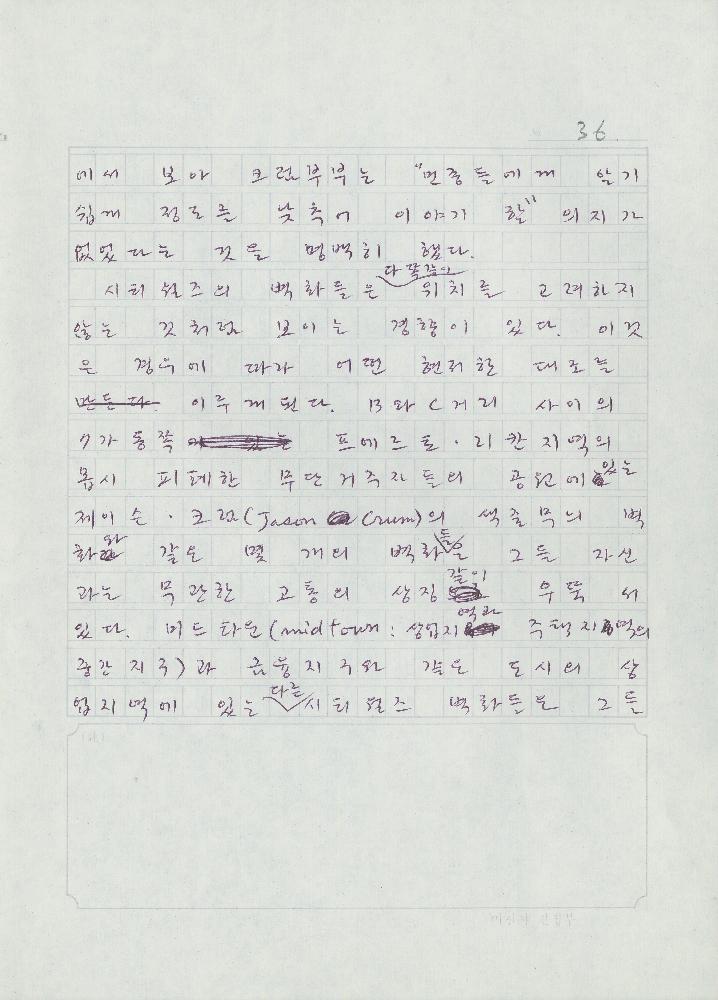 36.
에서 보아 크럼부부는 "민중들에게 알기
쉽게 정도를 낮추어 이야기 할" 의지가
없었다는 것을 명백히 했다.
다 똑같이
시티 월즈의 벽화들은 위치를 고려하지
않는 것처럼 보이는 경향이 있다. 이것
은 경우에 따라 어떤 현저한 대조를
만든다. 이루게 된다. B와 C거리 사이의
7가 동쪽 프에르토·리칸지역의
몹시 피폐한 무단거주자들의 공원에 있는
제이슨·크럼(Jason Crum)의 색줄무늬 벽
화와 같은 몇 개의 벽화들은 그들 자신
과는 무관한 고통의 상징같이 우뚝 서
있다. 미드타운(midtown: 상업지역과 주택지역의
중간지구)과 금융지구와 같은 도시의 상
업지역에 있는 다른 시티월즈 벽화들은 그들